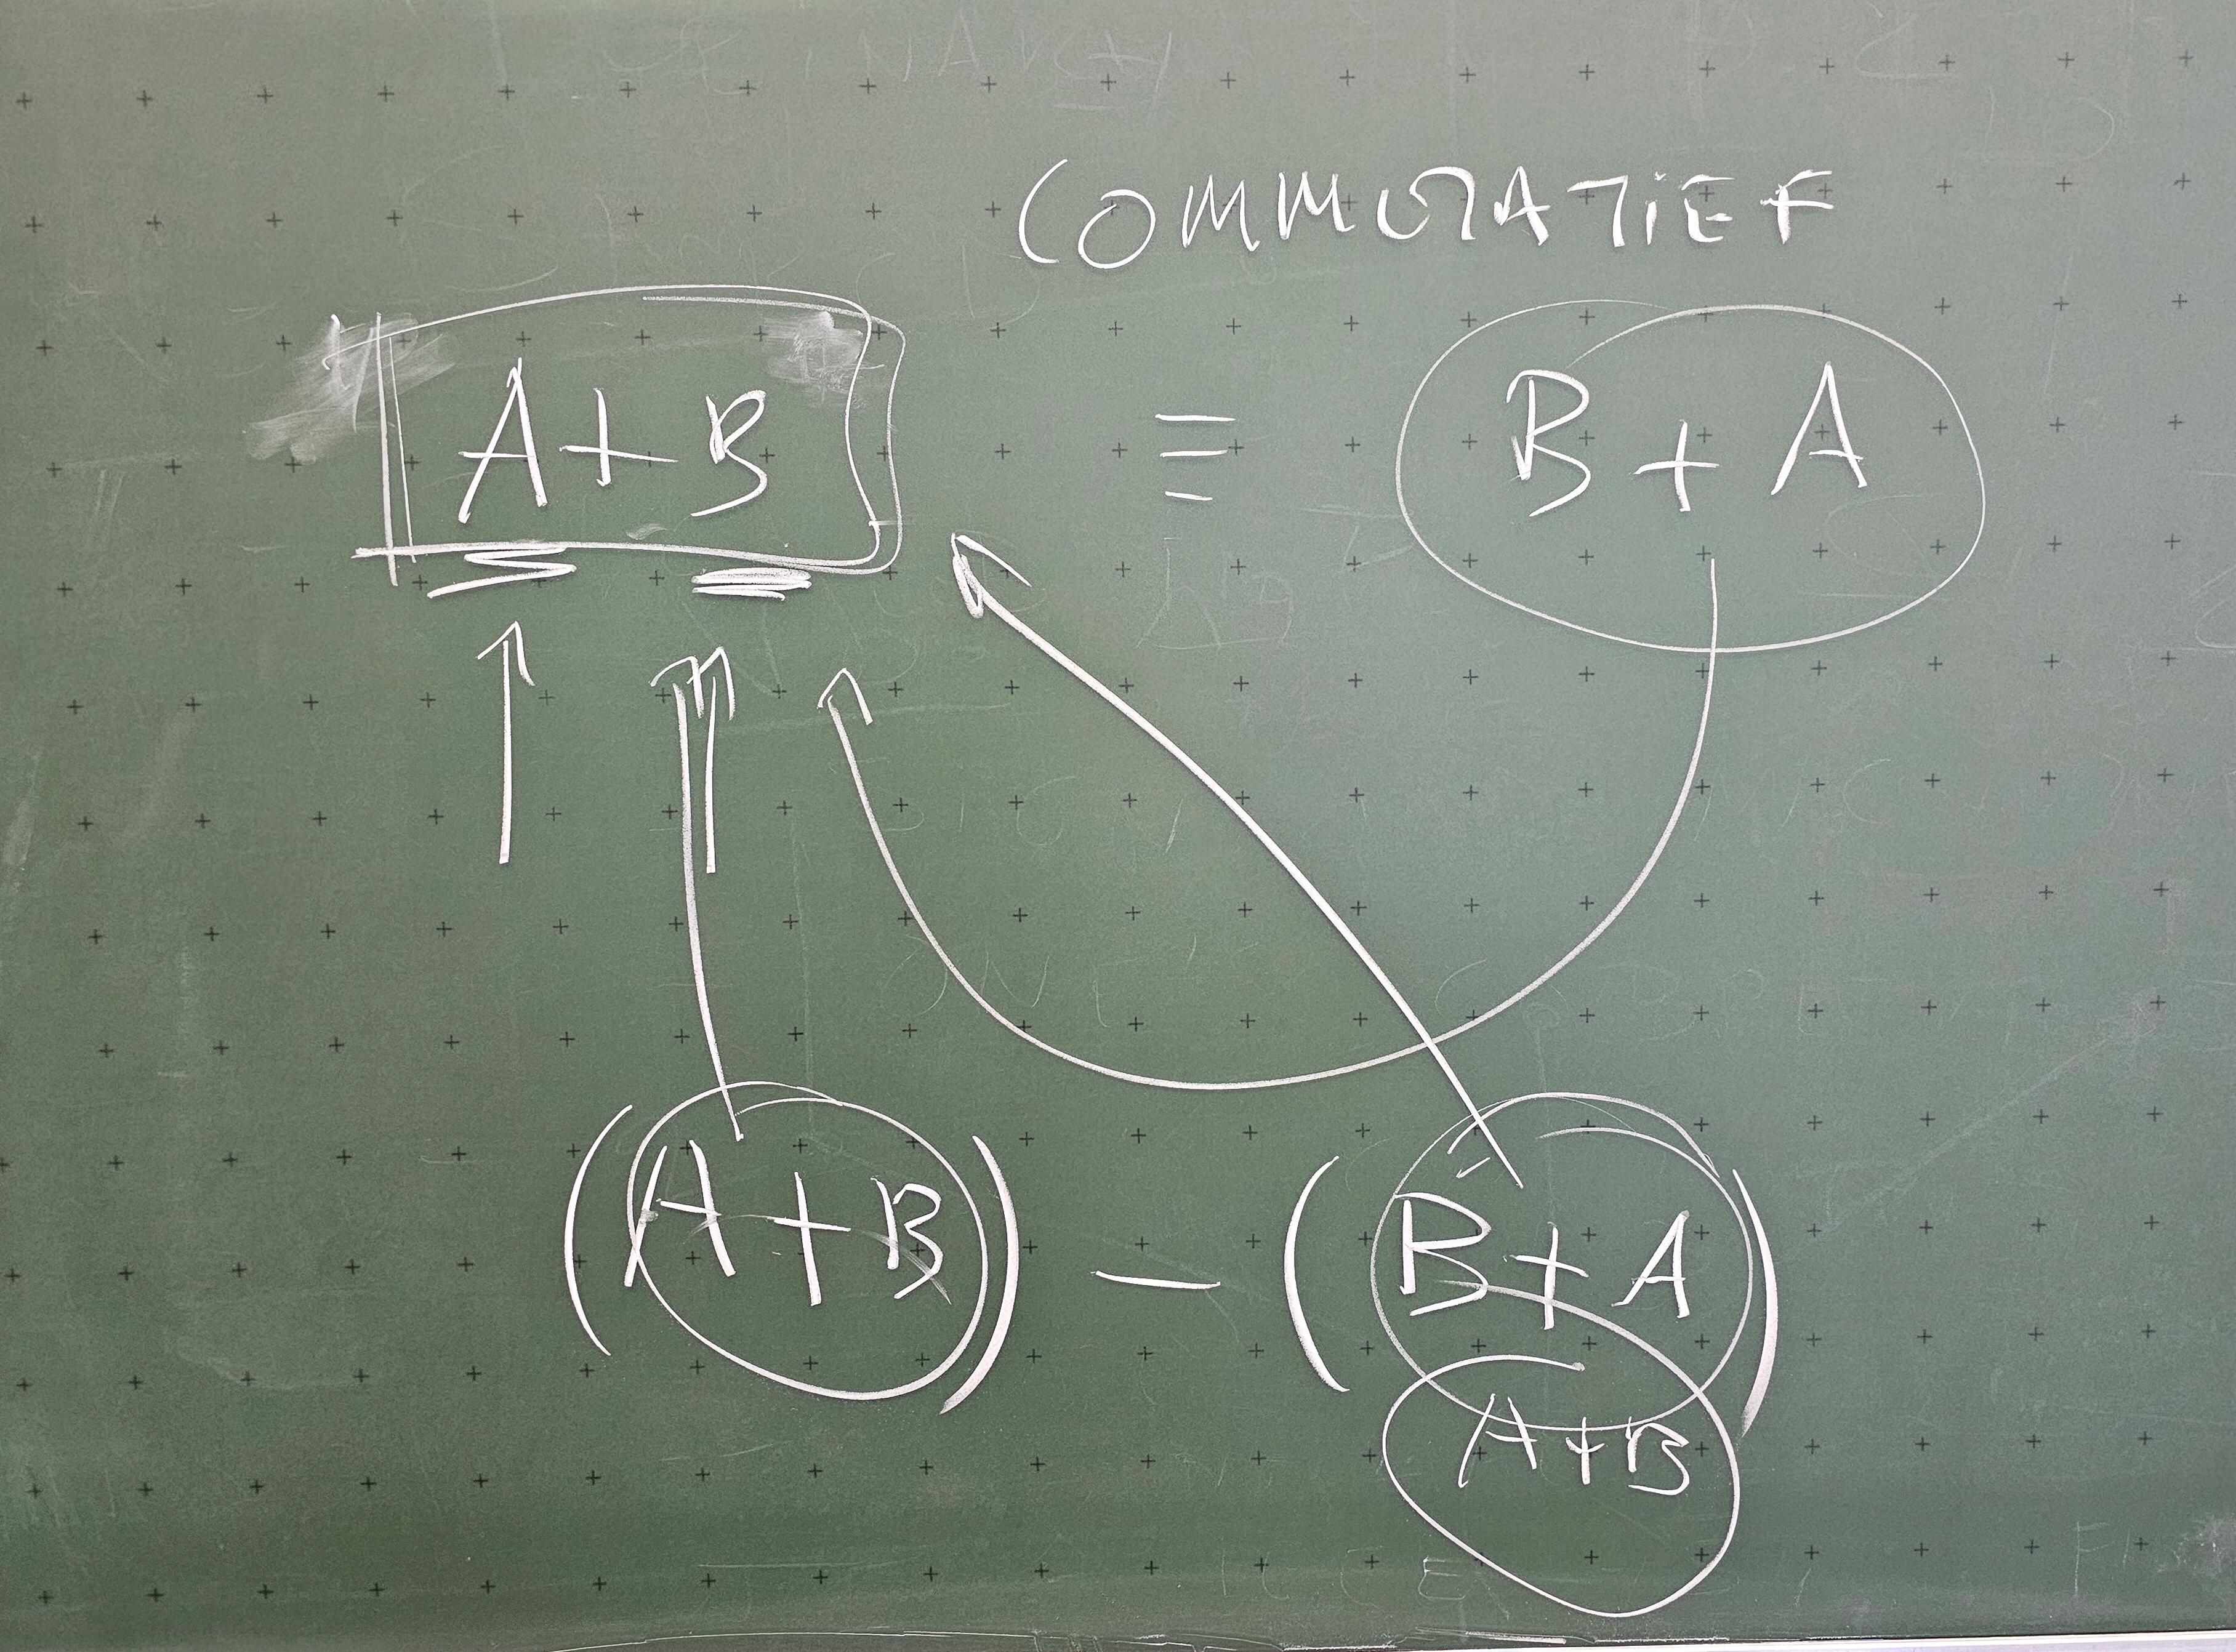 COMMUTATIEF
A + B ≡ B + A
(A + B) — (B + A)
A + B